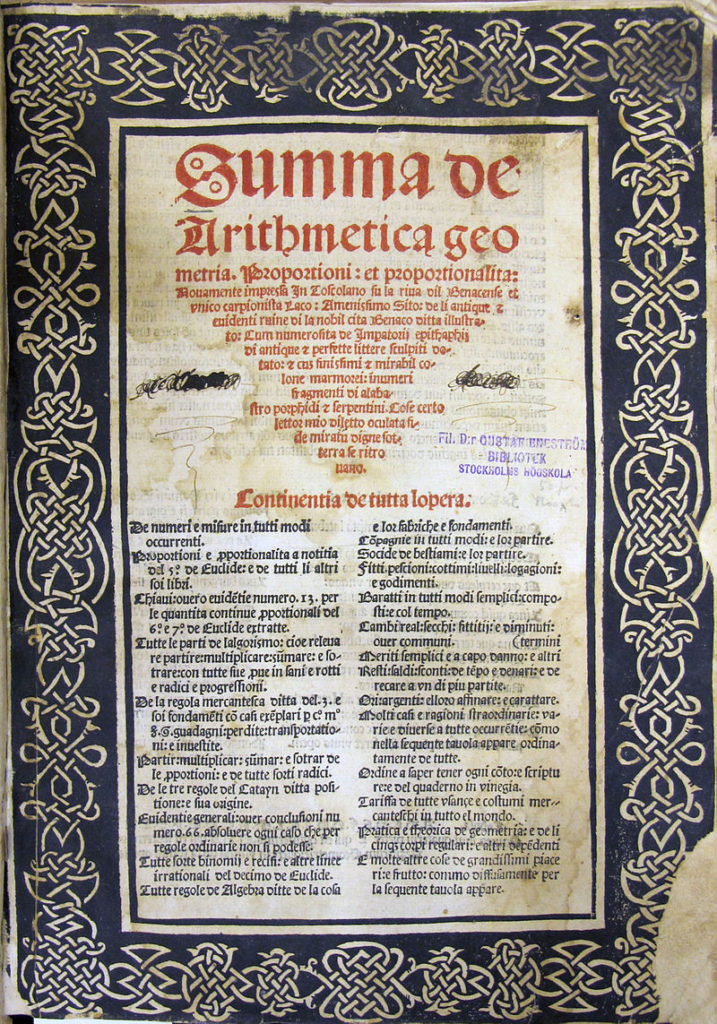 Summa de
Arithmetica geo
metria. Proportioni: et proportionalita:
Novamente impressa In Toscolano su la riva dil Benacense et
vnico carpionista Laco: Amenissimo Sito: de li antique &
evidenti ruine di la nobil cita Benaco ditta illustra-
to: Cum numerosita de Imperatorij epithaphij
di antique & perfette littere sculpiti do-
tato: & cus finissimi & mirabil co-
lone marmorei: inumeri
fragmenti di alaba-
stro porphidi & serpentini. Cose certo
lettor mio diletto oculata fi-
de miratu digne sot-
terra se ritro
uano.
Fil. D:r GUSTAF ENESTRÖM
BIBLIOTEK
STOCKHOLMS HÖGSKOLA
Continentia de tutta lopera.
De numeri e misure in tutti modi
occurrenti.
Proportioni e ꝓportionalita a notitia
del 5º de Euclide: e de tutti li altri
soi libri.
Chiaui: ouero euidẽtie numero .13. per
le quantita continue ꝓportionali del
6º e 7º de Euclide extratte.
Tutte le parti de lalgorismo: cioe releua
re partire: multiplicar: sũmare: e so-
trare: con tutte sue ꝓue in sani e rotti
e radici e progressioni.
De la regola mercantesca ditta del .3. e
soi fondamẽti cõ casi exẽplari ꝑ cº mº
§. G. guadagni: perdite: transportatio-
ni: e inuestite.
Partir: multiplicar: sũmar: e sotrar de
le ꝓportioni: e de tutte sorti radici.
De le tre regole del Catayn ditta posi-
tione: e sua origine.
Euidentie generali: ouer conclusioni nu
mero .66. absoluere ogni caso che per
regole ordinarie non si podesse.
Tutte sorte binomij e recisi: e altre linee
irrationali del decimo de Euclide.
Tutte regole de Algebra ditte de la cosa
e lor fabriche e fondamenti.
Cõpagnie in tutti modi: e lor partire.
Socide de bestiami: e lor partire.
Fitti: pescioni: cottimi: liuelli: logagioni:
e godimenti.
Baratti in tutti modi semplici: compo-
sti: e col tempo.
Cambi real: secchi: fittitij: e diminuti:
ouer communi. (termini
Meriti semplici e a capo danno: e altri
Resti: saldi: sconti: de tẽpo e denari: e de
recare a vn di piu partite.
Ori: argenti: e lloro affinare: e carattare.
Molti casi e ragioni straordinarie: va-
rie e diuerse a tutte occurrẽtie: cõmo
nella sequente tauola appare ordina-
tamente de tutte.
Ordine a saper tener ogni cõto: e scriptu
re: e del quaderno in vinegia.
Tariffa de tutte vsançe e costumi mer-
canteschi in tutto el mondo.
Pratica e theorica de geometria: e de li
cinq3 corpi regulari: e altri depẽdenti
E molte altre cose de grandissimi piace
ri: e frutto: commo diffusamente per
la sequente tauola appare.